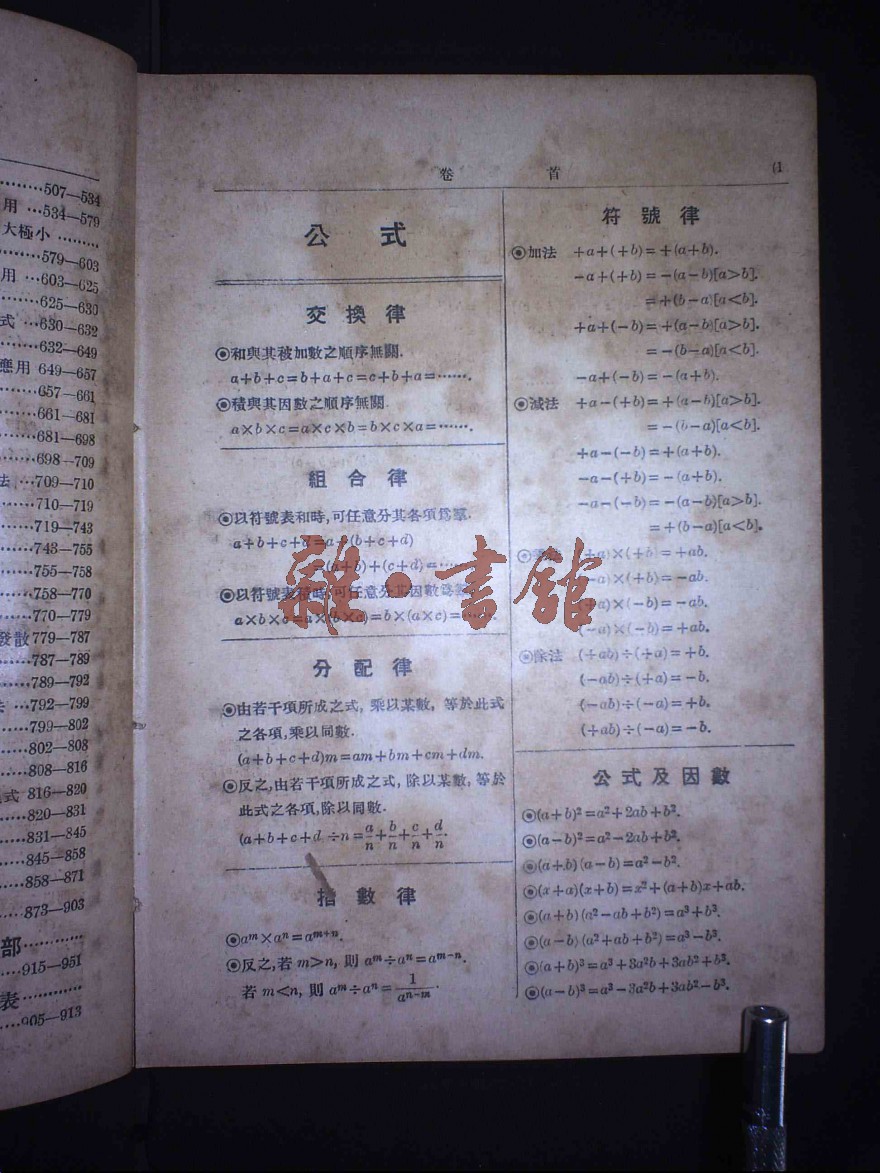 507—534
用 …534—579
大極小 ………
579—603
用 …603—625
625—630
式 …630—632
632—649
應用 649—657
657—661
661—681
681—698
698—709
法 …709—710
710—719
719—743
743—755
755—758
758—770
770—779
發散 779—787
787—789
789—792
法 …792—799
799—802
802—808
808—816
式 816—820
820—831
831—845
845—858
858—871
873—903
部…………
915—951
表…………
905—913
卷 首 (1
公 式
交換律
◉和與其被加數之順序無關.
a+b+c=b+a+c=c+b+a=…….
◉積與其因數之順序無關.
a×b×c=a×c×b=b×c×a=…….
組合律
◉以符號表和時,可任意分其各項爲羣.
a+b+c+d=a+(b+c+d)
=(a+b)+(c+d)=…….
◉以符號表積時,可任意分其因數爲羣.
a×b×c=a×(b×c)=b×(a×c)=…….
分配律
◉由若干項所成之式, 乘以某數, 等於此式
之各項,乘以同數.
(a+b+c+d)m=am+bm+cm+dm.
◉反之,由若干項所成之式, 除以某數, 等於
此式之各項,除以同數.
(a+b+c+d ÷n=a/n+b/n+c/n+d/n.
指數律
◉aᵐ×aⁿ=aᵐ⁺ⁿ.
◉反之,若 m>n, 則 aᵐ÷aⁿ=aᵐ⁻ⁿ.
若 m<n, 則 aᵐ÷aⁿ=1/aⁿ⁻ᵐ.
符號律
◉加法 +a+(+b)=+(a+b).
−a+(+b)=−(a−b)[a>b].
=+(b−a)[a<b].
+a+(−b)=+(a−b)[a>b].
=−(b−a)[a<b].
−a+(−b)=−(a+b).
◉減法 +a−(+b)=+(a−b)[a>b].
=−(b−a)[a<b].
+a−(−b)=+(a+b).
−a−(+b)=−(a+b).
−a−(−b)=−(a−b)[a>b].
=+(b−a)[a<b].
◉乘法 (+a)×(+b)=+ab.
(−a)×(+b)=−ab.
(+a)×(−b)=−ab.
(−a)×(−b)=+ab.
◉除法 (+ab)÷(+a)=+b.
(−ab)÷(+a)=−b.
(−ab)÷(−a)=+b.
(+ab)÷(−a)=−b.
公式及因數
◉(a+b)²=a²+2ab+b².
◉(a−b)²=a²−2ab+b².
◉(a+b)(a−b)=a²−b².
◉(x+a)(x+b)=x²+(a+b)x+ab.
◉(a+b)(a²−ab+b²)=a³+b³.
◉(a−b)(a²+ab+b²)=a³−b³.
◉(a+b)³=a³+3a²b+3ab²+b³.
◉(a−b)³=a³−3a²b+3ab²−b³.
雜·書館